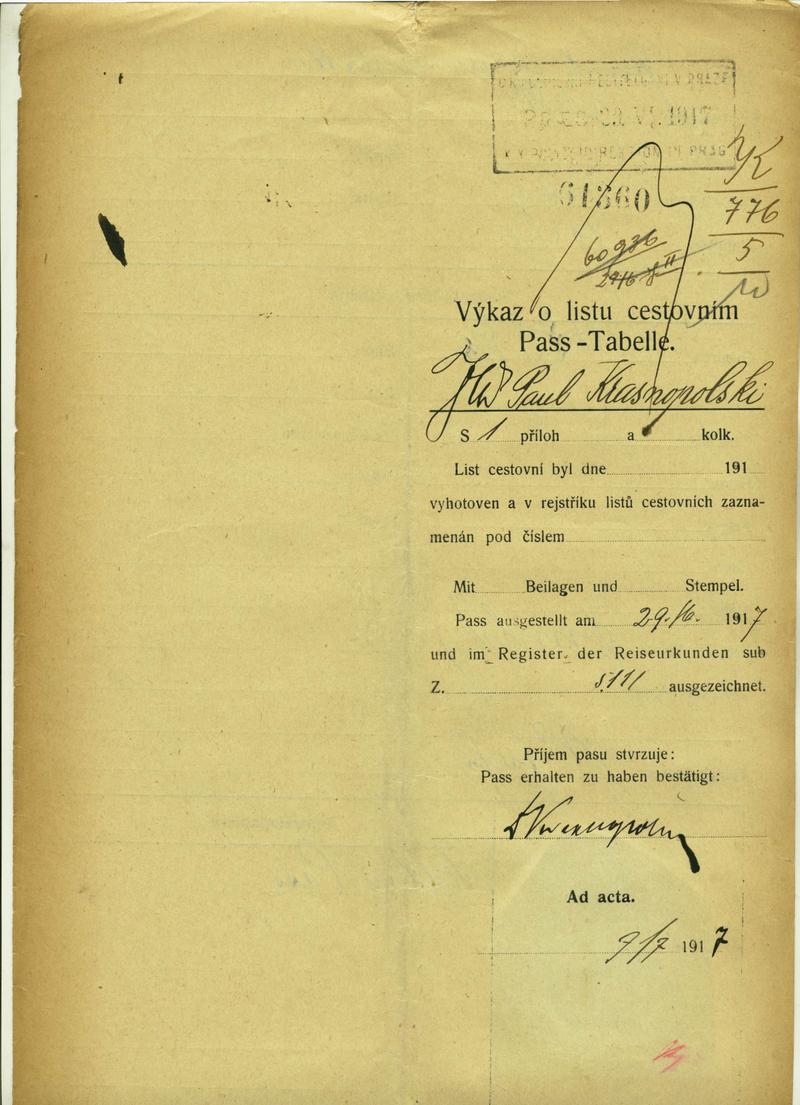 PRAZE
1917
K. K. POLIZEIDIREKTION PRAG
61360
K
776
5
60936
Výkaz o listu cestovním
Pass-Tabelle.
Paul Krasnopolski
S 1 příloh a kolk.
List cestovní byl dne 191
vyhotoven a v rejstříku listů cestovních zazna-
menán pod číslem
Mit Beilagen und Stempel.
Pass ausgestellt am 29./6. 1917
und im Register der Reiseurkunden sub
Z. 5111 ausgezeichnet.
Příjem pasu stvrzuje:
Pass erhalten zu haben bestätigt:
Ad acta.
9/7 1917